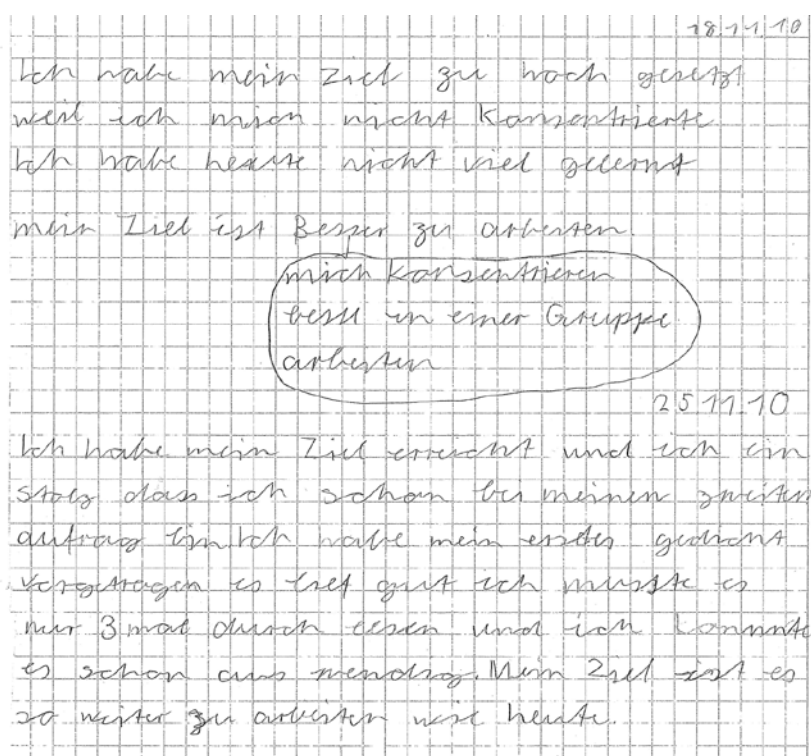 18.11.10
Ich habe mein Ziel zu hoch gesetzt
weil ich mich nicht Konsentrierte
Ich habe heute nicht viel gelernt
mein Ziel ist Besser zu arbeiten.
mich konsentrieren
besser in einer Gruppe
arbeiten
25.11.10
Ich habe mein Ziel erreicht und ich bin
stolz dass ich schon bei meinen zweiten
auftrag bin. Ich habe mein erstes gedicht
vorgetragen es lief gut ich musste es
nur 3 mal durch lesen und ich konnnte
es schon aus wendig. Mein Ziel ist es
so weiter zu arbeiten wie heute.